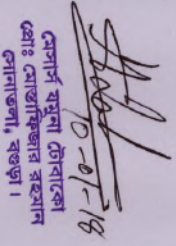 মেসার্স যমুনা টোবাকো
প্রোঃ মোস্তাফিজার রহমান
সোনাতলা, বগুড়া।